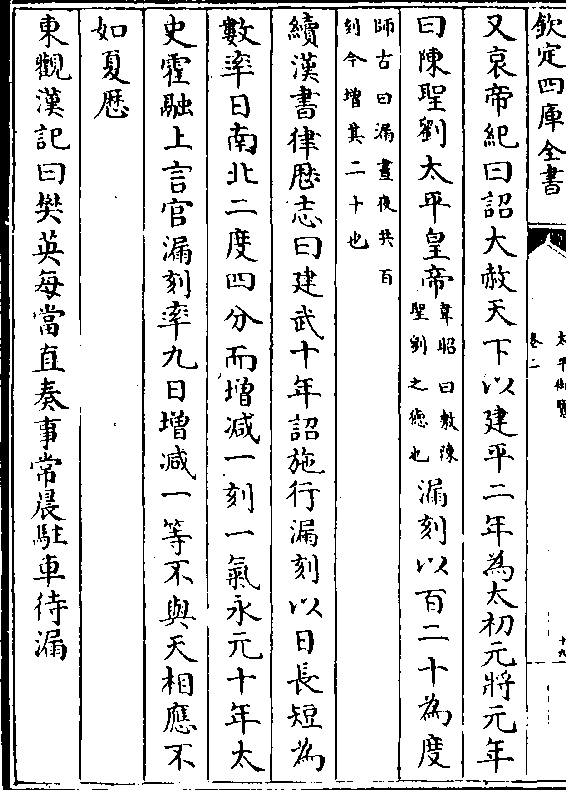 欽定四庫全書
太平御覽
卷二
十九
又哀帝紀曰詔大赦天下以建平二年為太初元將元年
曰陳聖劉太平皇帝韋昭曰敷陳
聖劉之德也漏刻以百二十為度
師古曰漏晝夜共百
刻今增其二十也
續漢書律歷志曰建武十年詔施行漏刻以日長短為
數率日南北二度四分而增减一刻一氣永元十年太
史霍融上言官漏刻率九日增减一等不與天相應不
如夏歷
東觀漢記曰樊英每當直奏事常晨駐車待漏